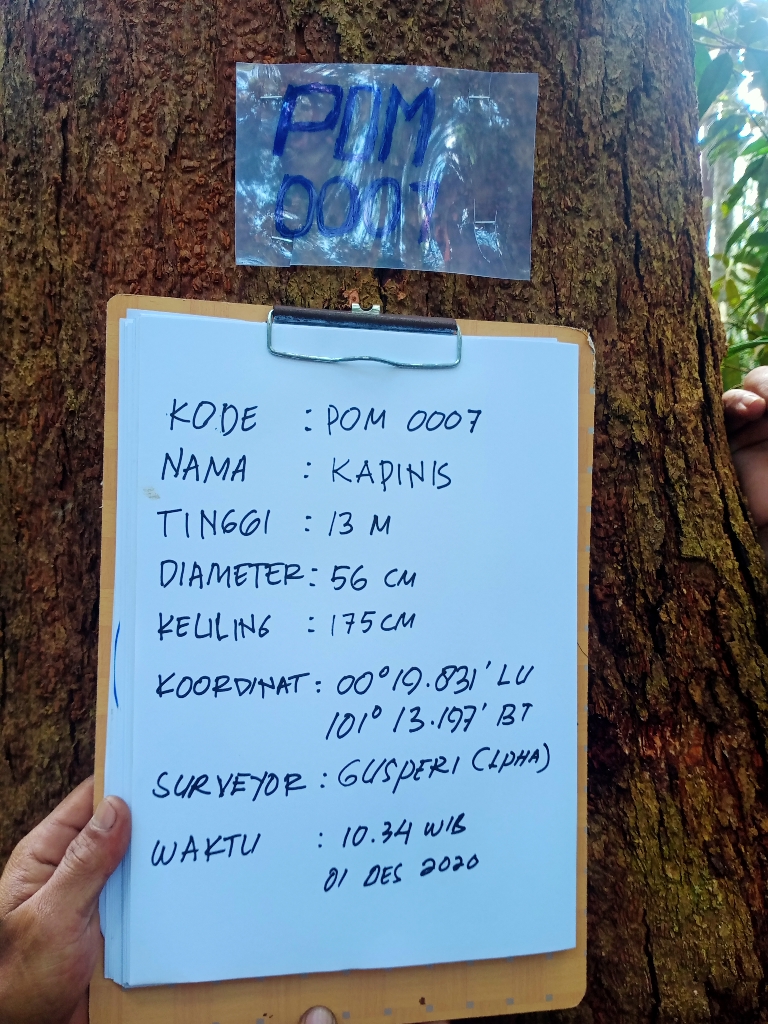 POM
0007
KODE : POM 0007
NAMA : KAPINIS
TINGGI : 13 M
DIAMETER : 56 CM
KELILING : 175 CM
KOORDINAT : 00° 19.831' LU
101° 13.197' BT
SURVEYOR : GUSPERI (LPHA)
WAKTU : 10.34 WIB
01 DES 2020